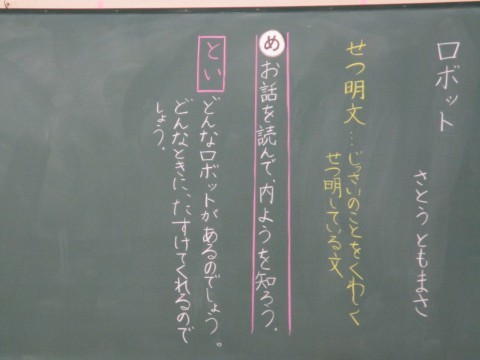 ロボット
さとうともまさ
せつ明文…じっさいのことをくわしく
せつ明している文
め お話を読んで、内ようを知ろう。
とい
どんなロボットがあるのでしょう。
どんなときに、たすけてくれるので
しょう。